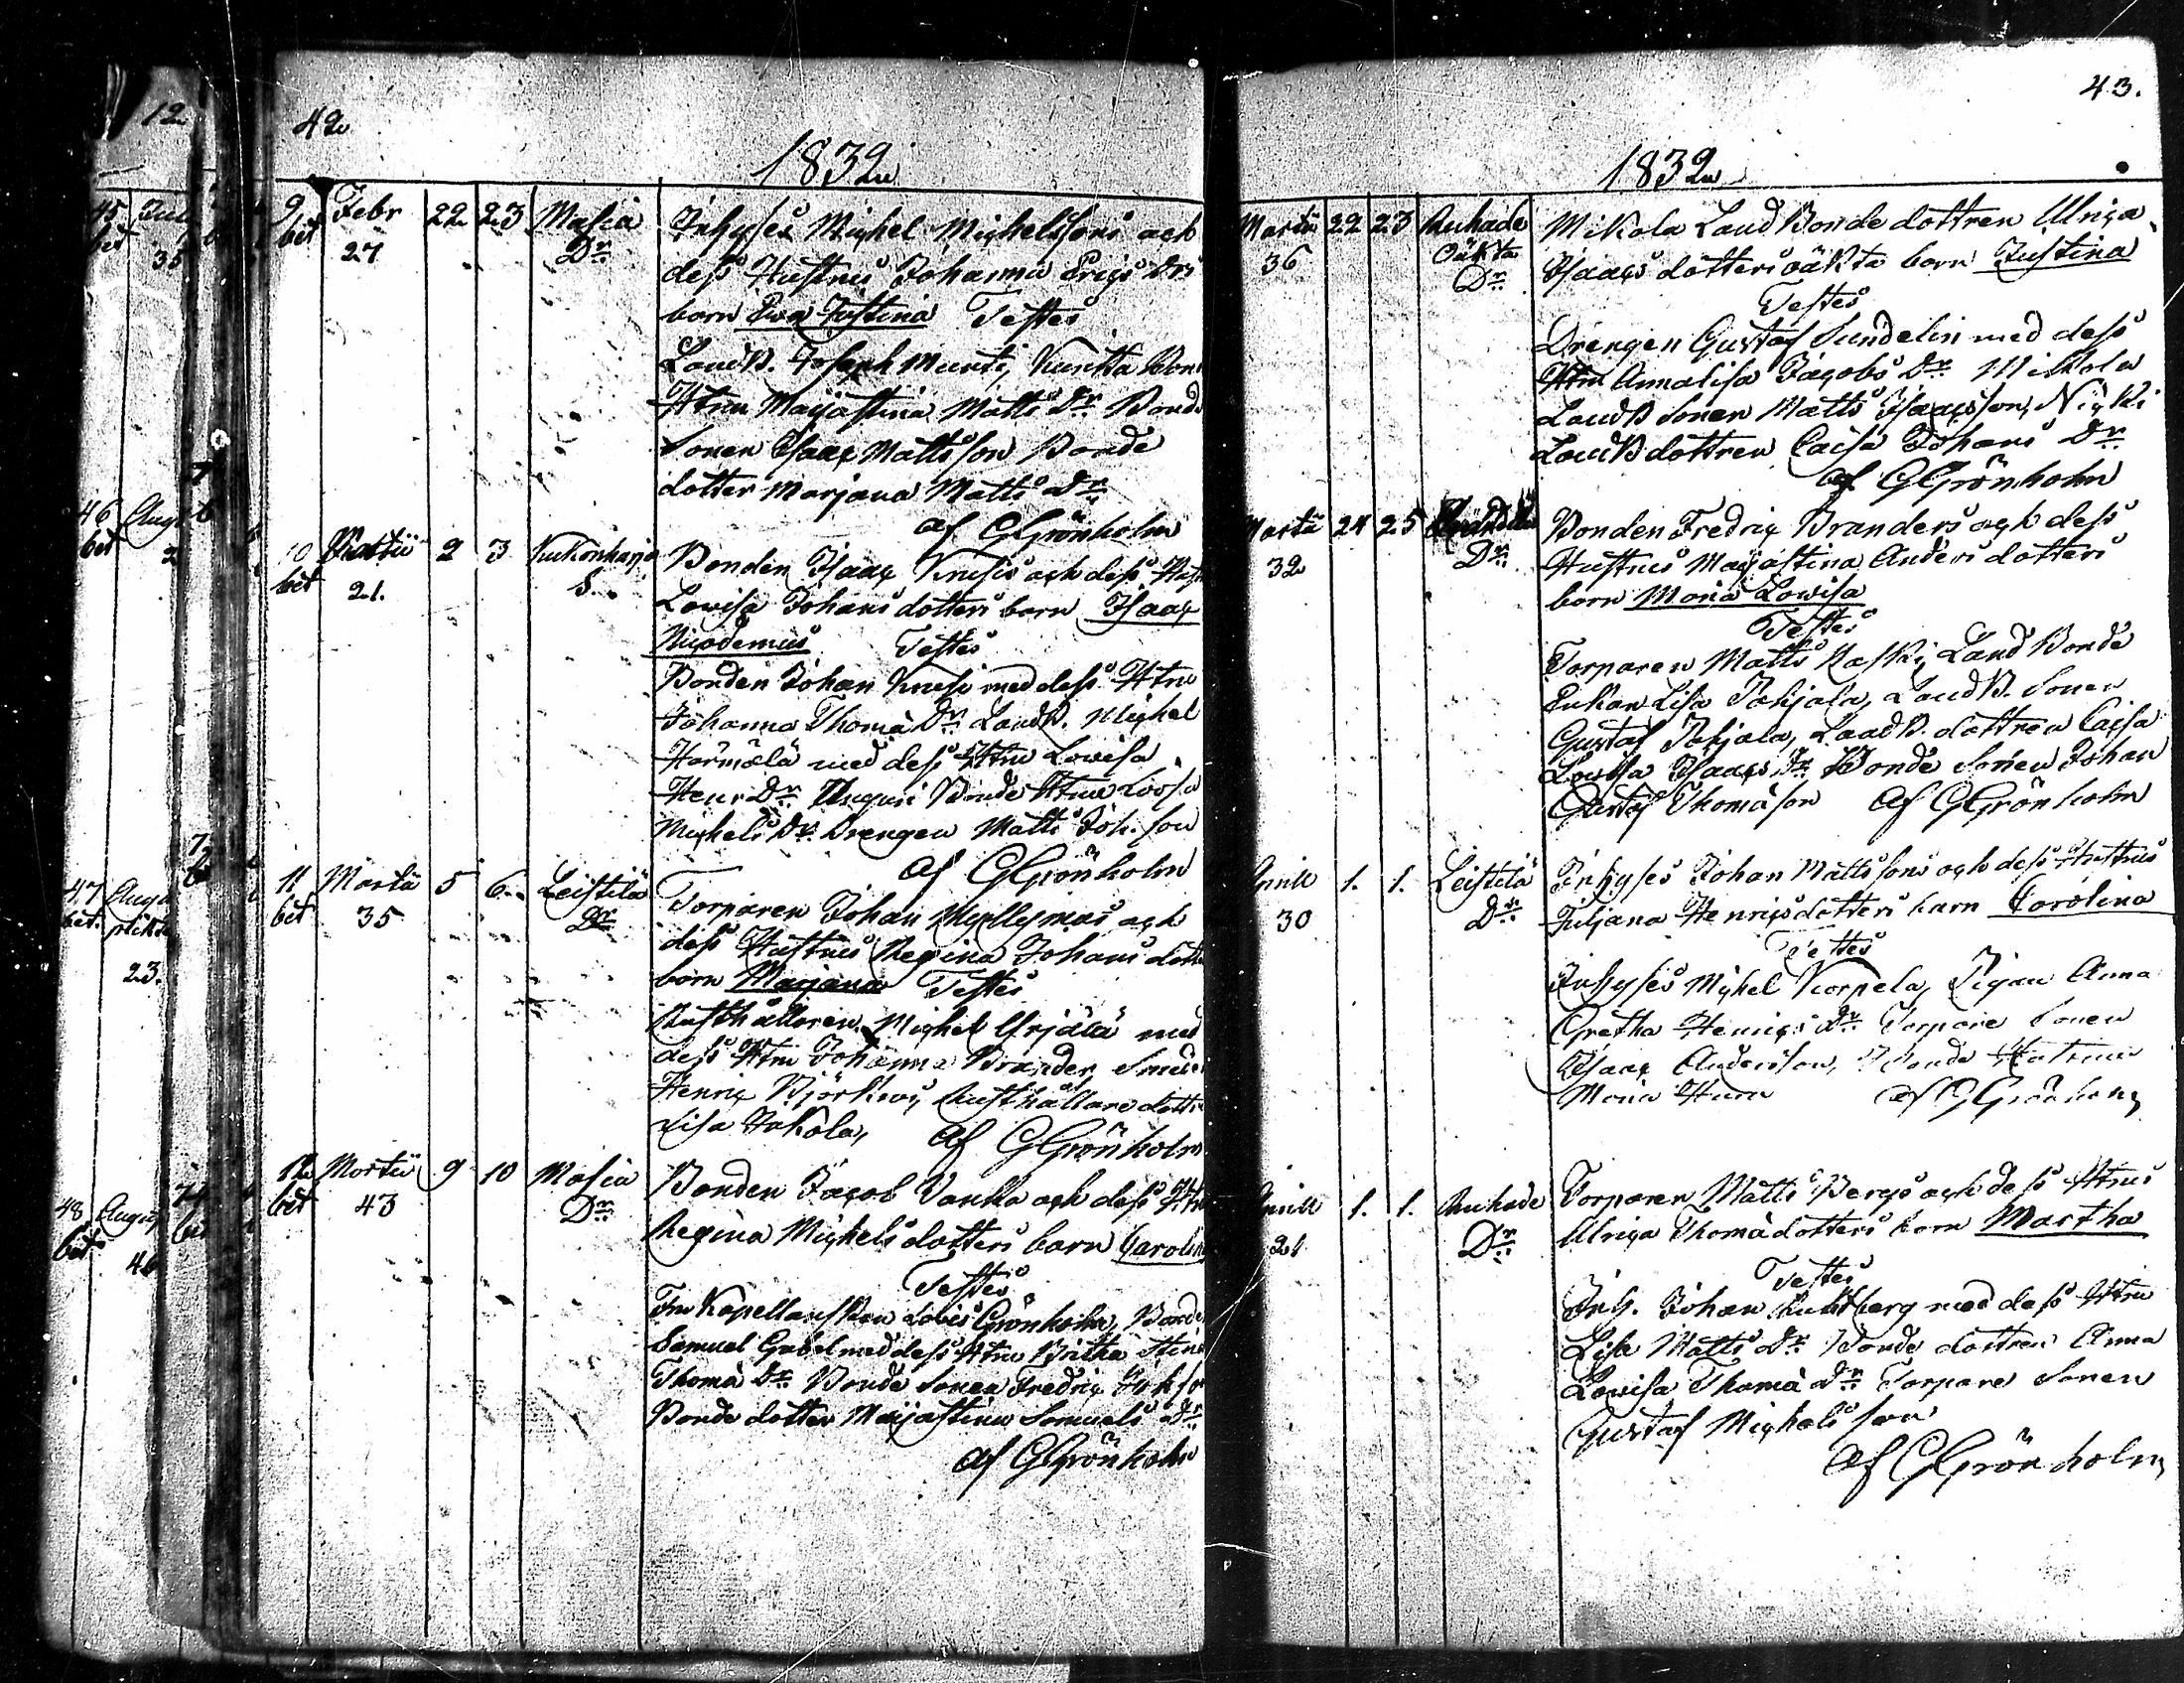 42
1832
9 Febr 22 23 Masia Inhyses Michel Michelssons och
bet 27 Dr dess Hustrus Johanna Erics Drs
barn Eva Justina Testes
LandB. Joseph Munti, Bond
Htru Majastina Matts Dr Bonde
Sonen Isaac Mattsson Bonde
dotter Marjana Matts Dr
af GGrönholm
10 Martii 2 3 Kukonharja Bonden Isaac Krusis och dess Hust
bet 21. S. Lovisa Johans dotters barn Isaac
Nicodemus Testes
Bonden Johan Krusi med dess Htru
Johanna Thomä Dr LandB. Michel
Härmälä med dess Htru Lovisa
Henr Dr Bonde Htru Lovisa
Michels Dr Drengen Matts Joh. son
af GGrönholm
11 Martii 5 6 Leistilä Torparen Johan Myllymas och
bet 35 Dr dess Hustrus Regina Johans dott
barn Marjana Testes
Rusthållaren Michel Yrjälä med
dess Htru Johanna Brander Smed
Henric Björkros, Rusthållare dottr
Lisa Jakola, af GGrönholm
12 Martii 9 10 Masia Bonden Jacob Vanka och dess Htru
bet 43 Dr Regina Michels dotters barn Carolin
Testes
Fru Kapellanskan Lovis Grönholm, Bonde
Samuel Gabel med dess Htru Britha Stina
Thomä Dr Bonde Sonen Fredric Joh so
Bonde dotter Majastina Samuels Dr
af GGrönholm
43.
1832
Martii 22 23 Auhade Mikola Land Bonde dottren Ulrica
36 Oäkta Isaacs dotters oäkta barn Justina
Dr Testes
Drengen Gustaf Sundelin med dess
Htru Annalisa Jacobs Dr Mikola
LandB Sonen Matts Isaacsson, Nicki
LandB dottren Caisa Johans Dr
af GGrönholm
Martii 24 25 Bonden Fredric Branders och dess
32 Dr Hustrus Majastina Anders dotters
barn Maria Lovisa
Testes
Torparen Matts Laski, Land Bonde
Enkan Lisa Tohjala, LandB. Sonen
Gustaf Tohjala, LandB. dottren Caisa
Lovisa Isaacs Dr Bonde Sonen Johan
Gustaf Thomäson af GGrönholm
Aprill 1. 1. Leistilä Inhyses Johan Mattssons och dess Hustrus
30 Dr Juljana Henrics dotters barn Carolina
Testes
Inhyses Michel Korpela, Pigan Anna
Gretha Henrics Dr Torpare Sonen
Isaac Andersson, Bonde Hustrun
Maria af GGrönholm
Aprill 1. 1. Auhade Torparen Matts Bergs och dess Htrus
21 Dr Ulrica Thomä dotters barn Martha
Testes
Inh. Johan med dess Htru
Lisa Matts Dr Bonde dottren Anna
Lovisa Thomä Dr Torpare Sonen
Gustaf Michels son
af GGrönholm
12
45
bet 35
46 Aug
bet 2
47 Aug
bet.
23.
48 Aug
bet 46